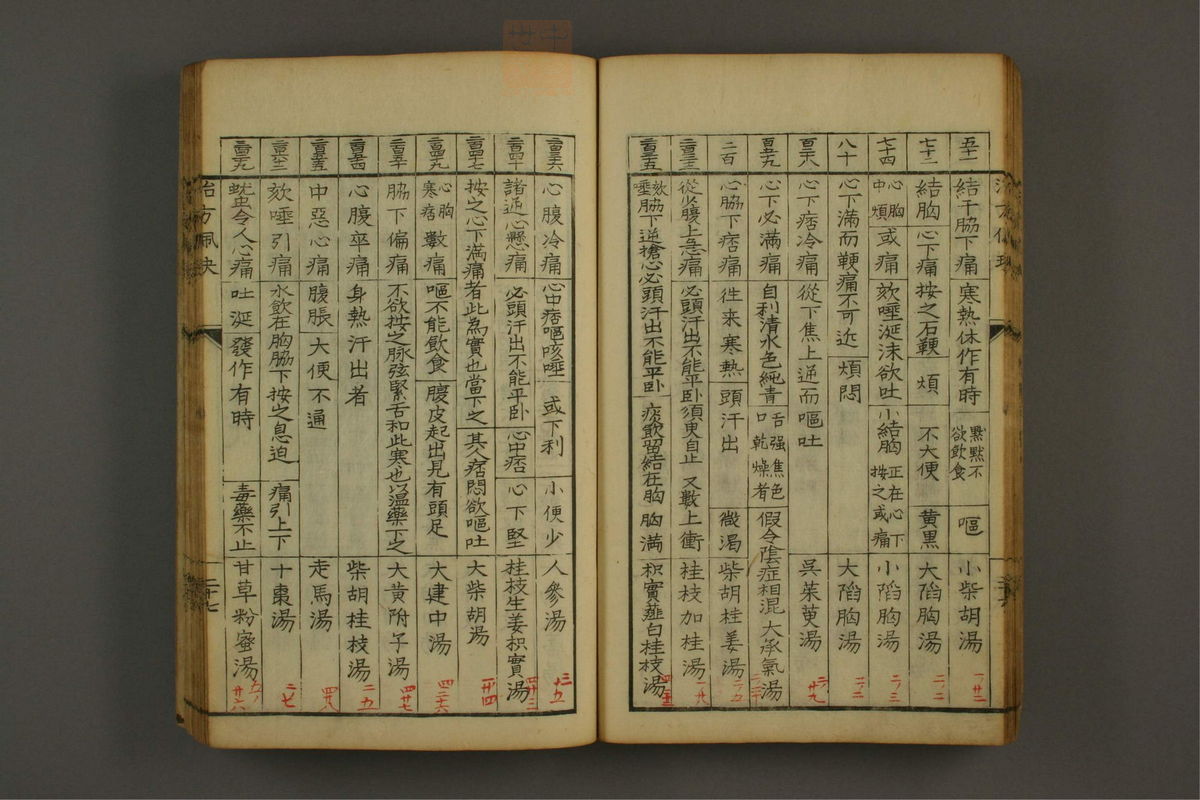 五十一 結于脇下痛 寒熱休作有時 黙黙不欲飲食 嘔 小柴胡湯 一ノ廿一
七十二 結胸 心下痛 按之石鞕 煩 不大便 黄黒 大陷胸湯 二ノ二
七十四 心胸中煩 或痛 欬唾涎沫欲吐 小結胸 正在心下按之或痛 小陷胸湯 二ノ三
八十 心下満而鞕痛不可近 煩悶 大陷胸湯 二ノ二
百二十八 心下痞冷痛 從下焦上逆而嘔吐 呉茱萸湯 二ノ廿九
百五十九 心下必満痛 自利清水色純青 舌强焦色口乾燥者 假令陰症相混 大承氣湯 二ノ二十
二百 心脇下痞痛 徃来寒熱 頭汗出 微渇 柴胡桂姜湯 二ノ五
二百三十三 從少腹上急痛 必頭汗出不能平卧須臾自止 又數上衝 桂枝加桂湯 一ノ九
二百三十五 欬唾脇下逆搶心必頭汗出不能平卧 痰飲留結在胸 胸満 枳實薤白桂枝湯
二百三十六 心腹冷痛 心中痞嘔咳唾 或下利 小便少 人參湯 三ノ五
二百四十 諸逆心懸痛 必頭汗出不能平卧 心中痞 心下堅 桂枝生姜枳實湯
二百四十七 按之心下満痛者此為實也當下之 其人痞悶欲嘔吐 大柴胡湯
二百四十九 心胸寒痞 數痛 嘔不能飲食 腹皮起出見有頭足 大建中湯 四ノ三十六
二百五十 脇下偏痛 不欲按之脉弦緊舌和此寒也以温薬下之 大黄附子湯 四ノ廿七
二百五十四 心腹卒痛 身熱汗出者 柴胡桂枝湯 二ノ五
二百五十五 中惡心痛 腹脹 大便不通 走馬湯 四ノ九
二百六十二 欬唾引痛 水飲在胸脇下按之息迫 痛引上下 十棗湯 二ノ七
二百七十九 蚘虫令人心痛 吐涎 發作有時 毒薬不止 甘草粉蜜湯
治方佩玦 二十七